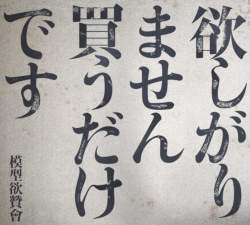 欲しがり
ません
買うだけ
です
模型欲賛會